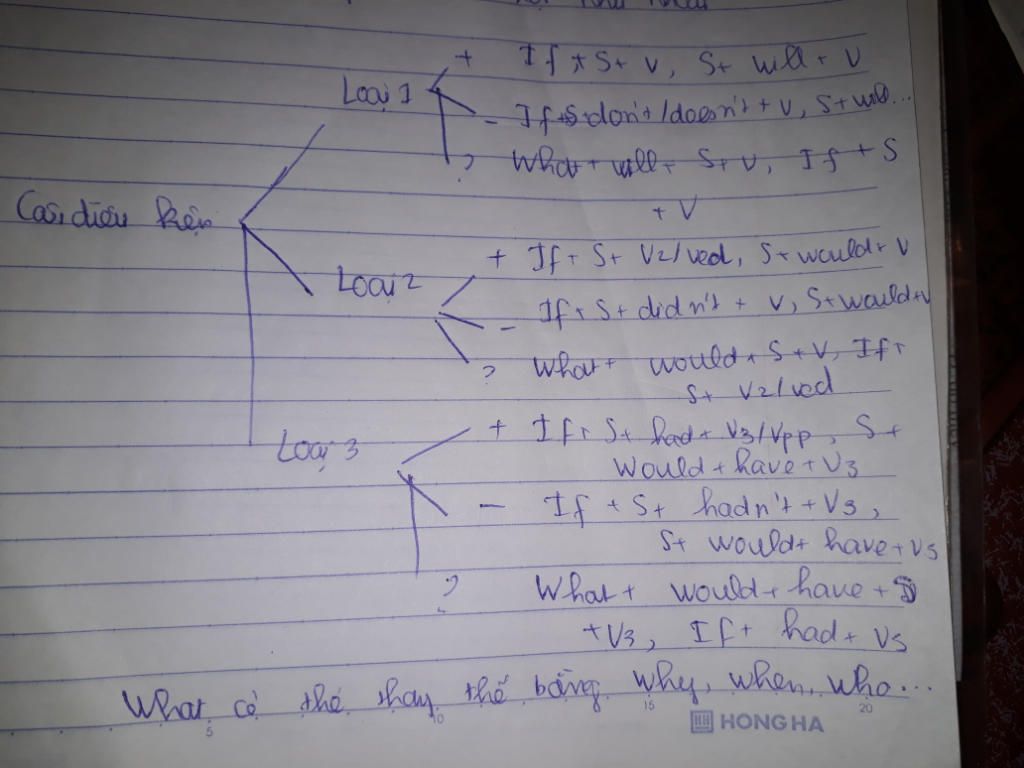 Loại 1
+ If + S + V, S + will + V
- If + S + don't/doesn't + V, S + will...
? What + will + S + V, If + S
+ V
Câu điều kiện
Loại 2
+ If + S + V2/Ved, S + would + V
- If + S + didn't + V, S + would + V
? What + would + S + V, If +
S + V2/Ved
Loại 3
+ If + S + had + V3/Vpp, S +
Would + have + V3
- If + S + hadn't + V3,
S + would + have + V3
? What + would + have + S
+ V3, If + had + V3
What có thể thay thế bằng why, when, who...
5 10 15 20
HH HONG HA